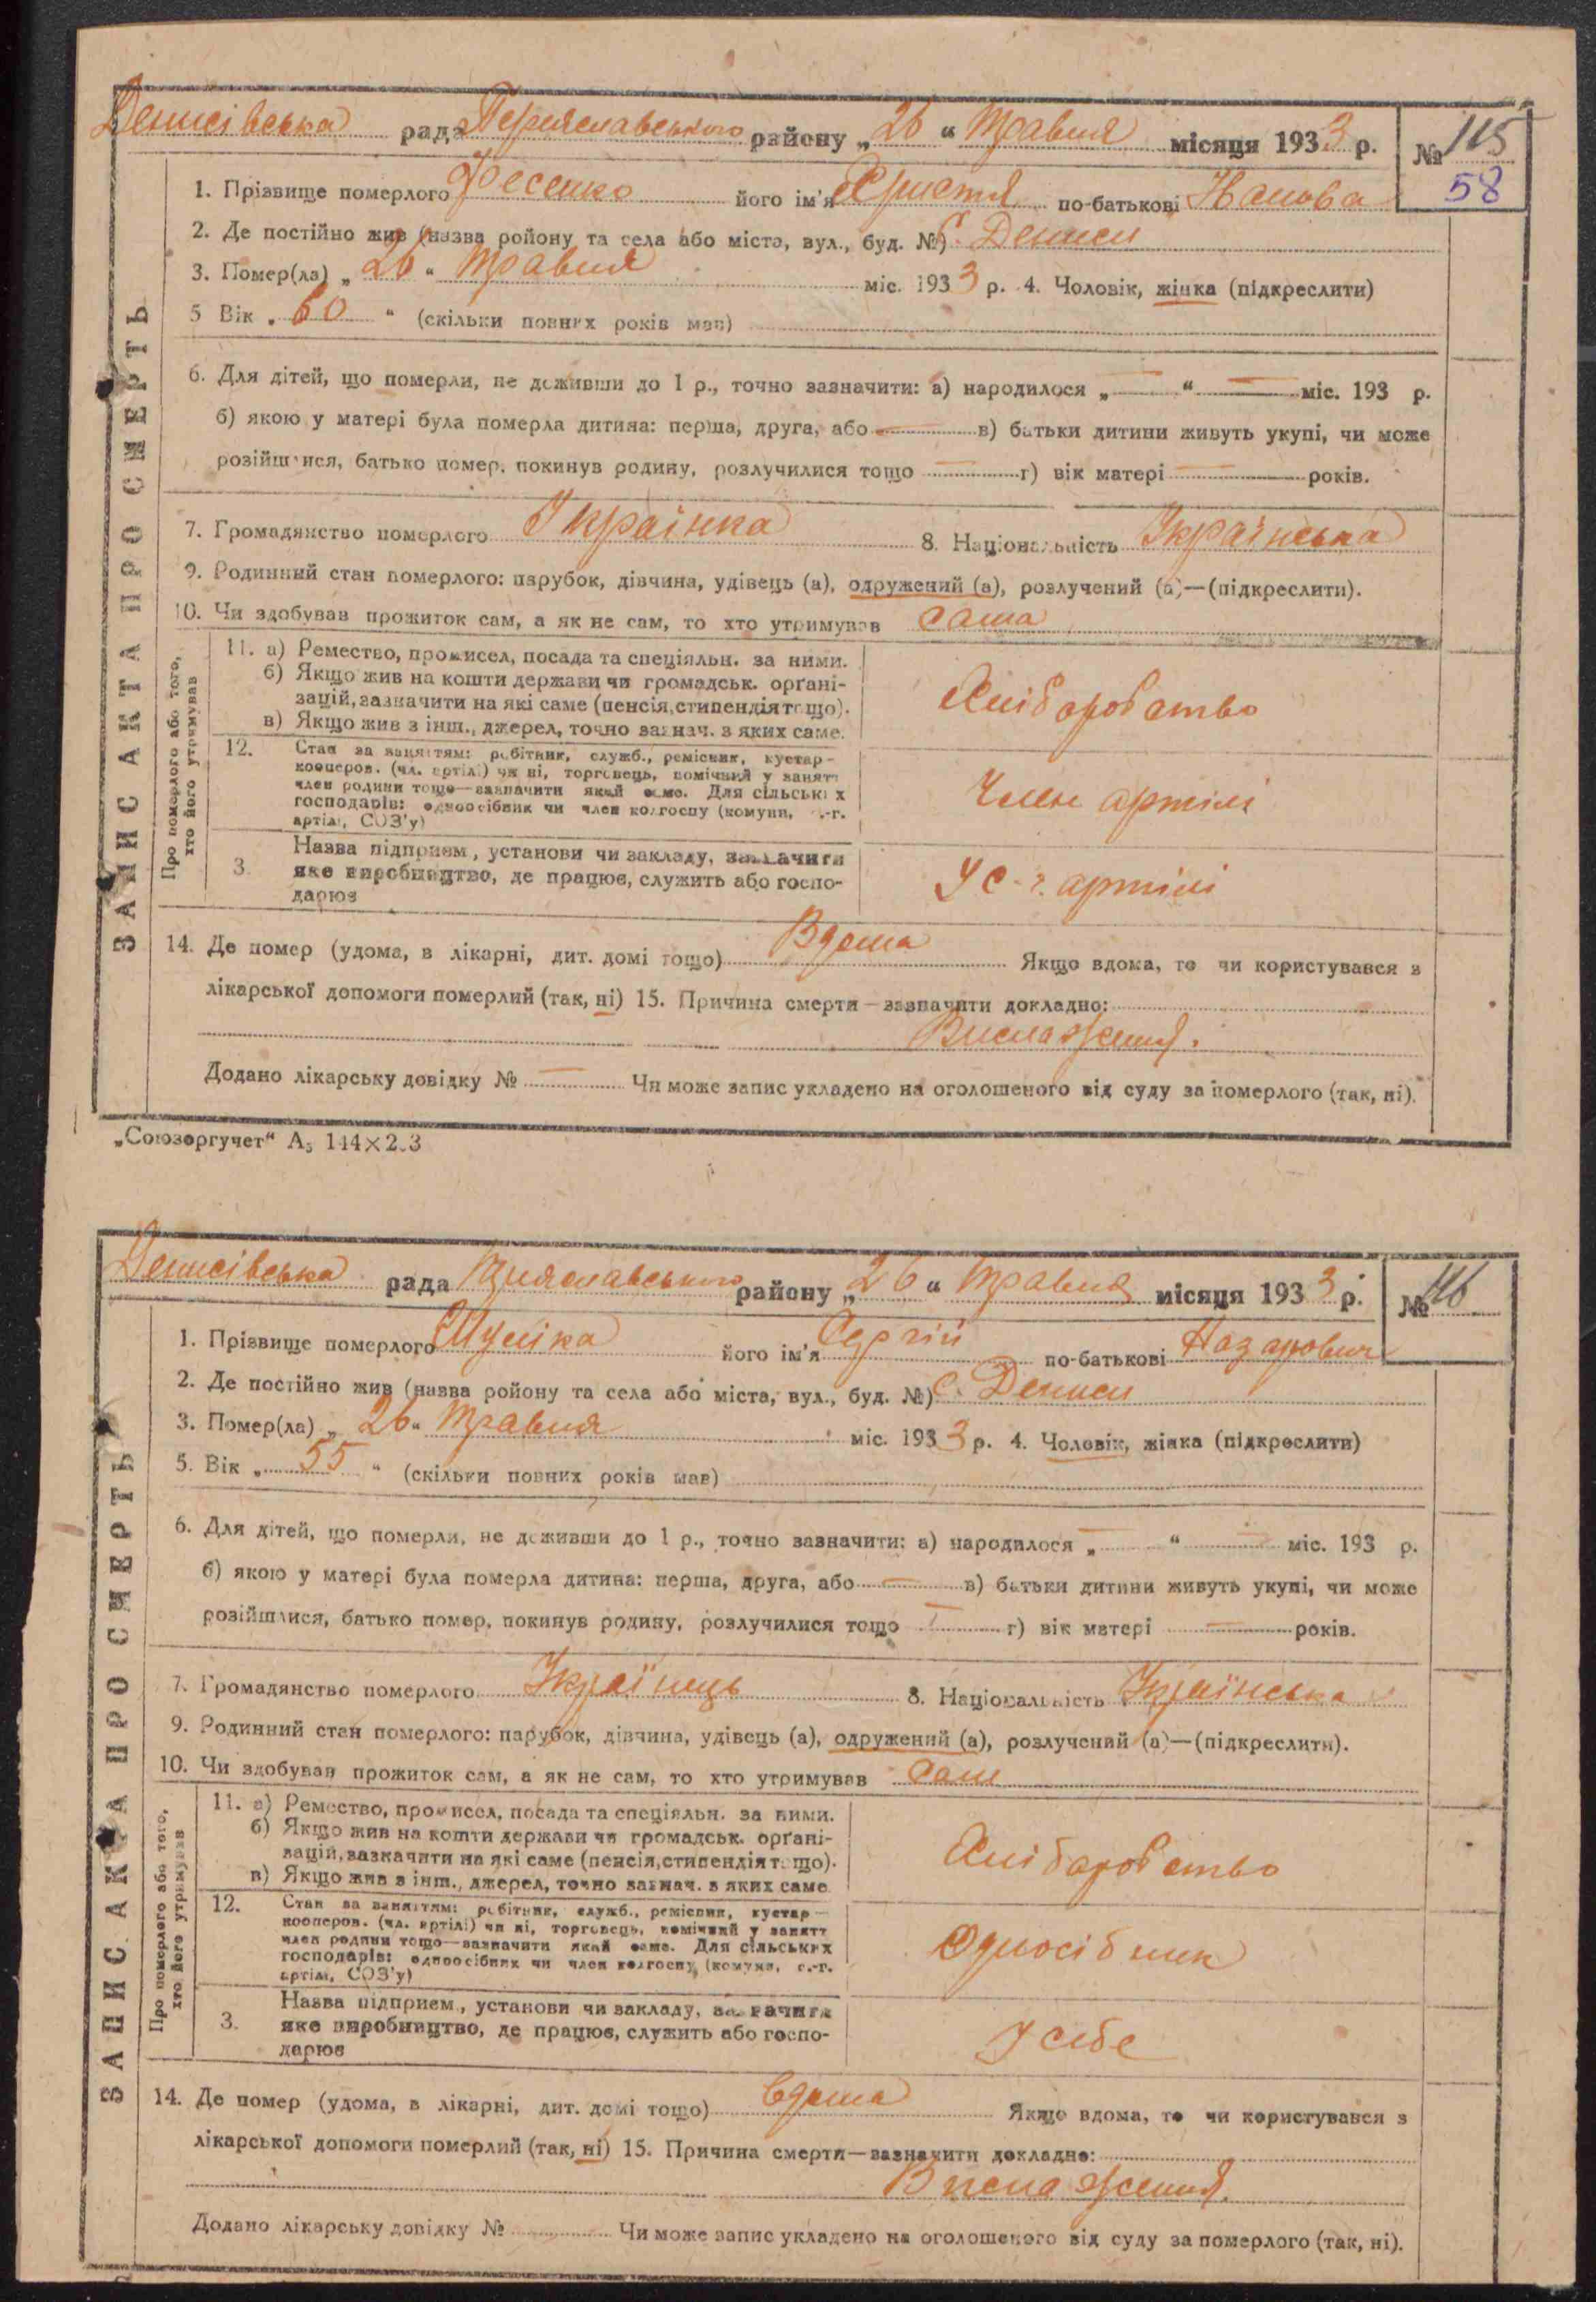 Денисівська рада Переяславського району „26“ Травня місяця 1933 р. № 115
58
1. Прізвище померлого Фесенко його ім'я Христя по-батькові
2. Де постійно жив (назва ройону та села або міста, вул., буд. №) с. Дениси
3. Помер(ла) „26“ Травня міс. 1933 р. 4. Чоловік, жінка (підкреслити)
5 Вік „60“ (скільки повних років мав)
6. Для дітей, що померли, не доживши до 1 р., точно зазначити: а) народилося „—“ — міс. 193 р.
б) якою у матері була померла дитина: перша, друга, або — в) батьки дитини живуть укупі, чи може
розійшлися, батько помер, покинув родину, розлучилися тощо — г) вік матері — років.
7. Громадянство померлого Українка 8. Національність Українська
9. Родинний стан померлого: парубок, дівчина, удівець (а), одружений (а), розлучений (а)—(підкреслити).
10. Чи здобував прожиток сам, а як не сам, то хто утримував Сама
ЗАПИС АКТА ПРО СМЕРТЬ
Про померлого або того,
хто його утримував
11. а) Ремество, промисел, посада та спеціяльн. за ними.
б) Якщо жив на кошти держави чи громадськ. орґані-
зацій, зазначити на які саме (пенсія, стипендія тощо).
в) Якщо жив з інш., джерел, точно зазнач. з яких саме.
Хліборобство
12. Стан за заняттям: робітник, служб., ремісник, кустар-
кооперов. (чл. артілі) чи ні, торговець, помічний у занятт
член родини тощо—зазначити який саме. Для сільських
господарів: одноосібник чи член колгоспу (комуни, с.-г.
артілі, СОЗ'у)
Член артілі
3. Назва підприєм., установи чи закладу, зазначити
яке виробництво, де працює, служить або госпо-
дарює
У с-г. артілі
14. Де помер (удома, в лікарні, дит. домі тощо) Вдома Якщо вдома, то чи користувався з
лікарської допомоги померлий (так, ні) 15. Причина смерти—зазначити докладно:
Виснаження.
Додано лікарську довідку № — Чи може запис укладено на оголошеного від суду за померлого (так, ні).
„Союзоргучет“ А₅ 144×2.3
Денисівська рада Переяславського району „26“ Травня місяця 1933 р. № 116
1. Прізвище померлого його ім'я Сергій по-батькові Назарович
2. Де постійно жив (назва ройону та села або міста, вул., буд. №) с. Дениси
3. Помер(ла) „26“ Травня міс. 1933 р. 4. Чоловік, жінка (підкреслити)
5. Вік „55“ (скільки повних років мав)
6. Для дітей, що померли, не доживши до 1 р., точно зазначити: а) народилося „—“ — міс. 193 р.
б) якою у матері була померла дитина: перша, друга, або — в) батьки дитини живуть укупі, чи може
розійшлися, батько помер, покинув родину, розлучилися тощо — г) вік матері — років.
7. Громадянство померлого Українець 8. Національність Українська
9. Родинний стан померлого: парубок, дівчина, удівець (а), одружений (а), розлучений (а)—(підкреслити).
10. Чи здобував прожиток сам, а як не сам, то хто утримував Сам
ЗАПИС АКТА ПРО СМЕРТЬ
Про померлого або того,
хто його утримував
11. а) Ремество, промисел, посада та спеціяльн. за ними.
б) Якщо жив на кошти держави чи громадськ. орґані-
зацій, зазначити на які саме (пенсія, стипендія тощо).
в) Якщо жив з інш., джерел, точно зазнач. з яких саме
Хліборобство
12. Стан за заняттям: робітник, служб., ремісник, кустар—
кооперов. (чл. артілі) чи ні, торговець, помічний у занятт
член родини тощо—зазначити який саме. Для сільських
господарів: одноосібник чи член колгоспу (комуни, с.-г.
артілі, СОЗ'у)
Односібник
3. Назва підприєм., установи чи закладу, зазначити
яке виробництво, де працює, служить або госпо-
дарює
У себе
14. Де помер (удома, в лікарні, дит. домі тощо) вдома Якщо вдома, то чи користувався з
лікарської допомоги померлий (так, ні) 15. Причина смерти—зазначити докладно:
Виснаження.
Додано лікарську довідку № Чи може запис укладено на оголошеного від суду за померлого (так, ні).